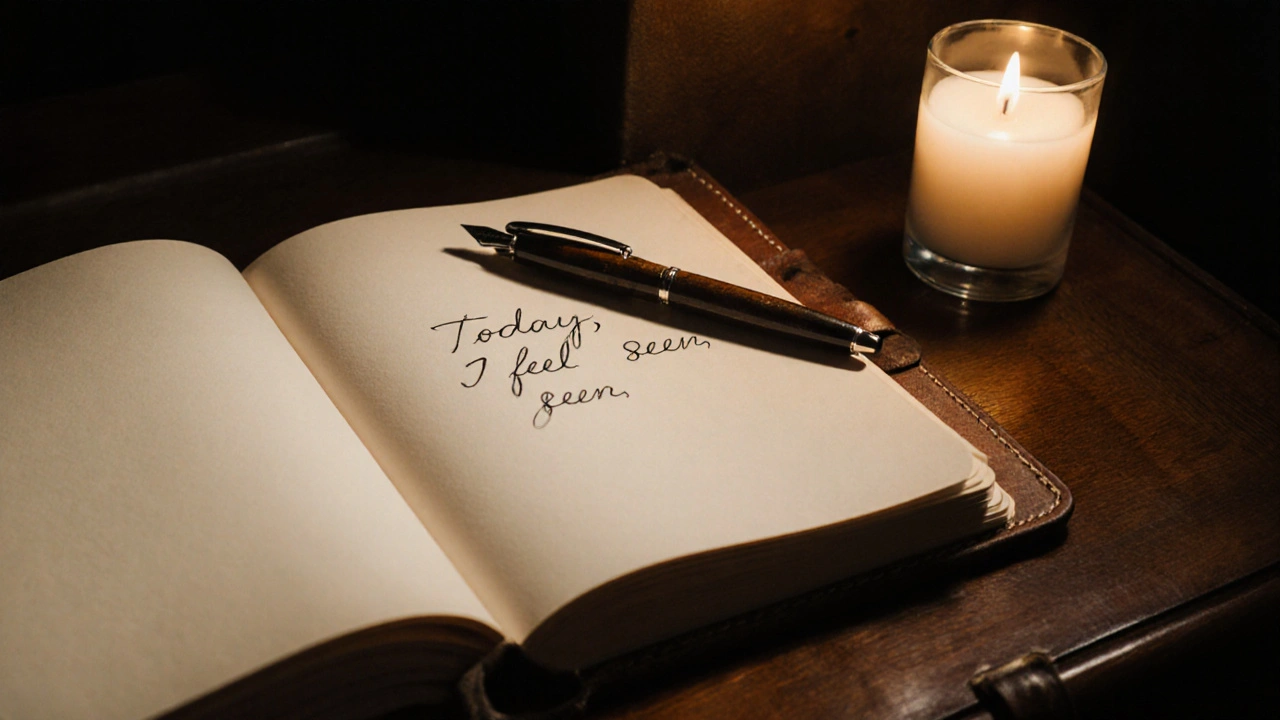 Today,
I feel seen
seen